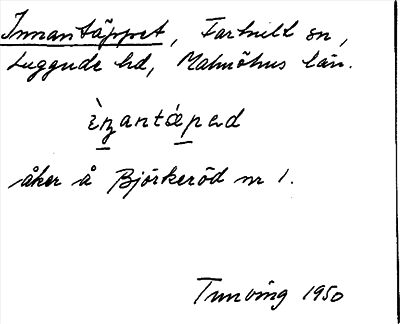 Innantäppet, Farhult sn,
Luggude hd, Malmöhus län.
ìn̠antǽpəd
åker å Björkeröd nr 1.
Tunving 1950